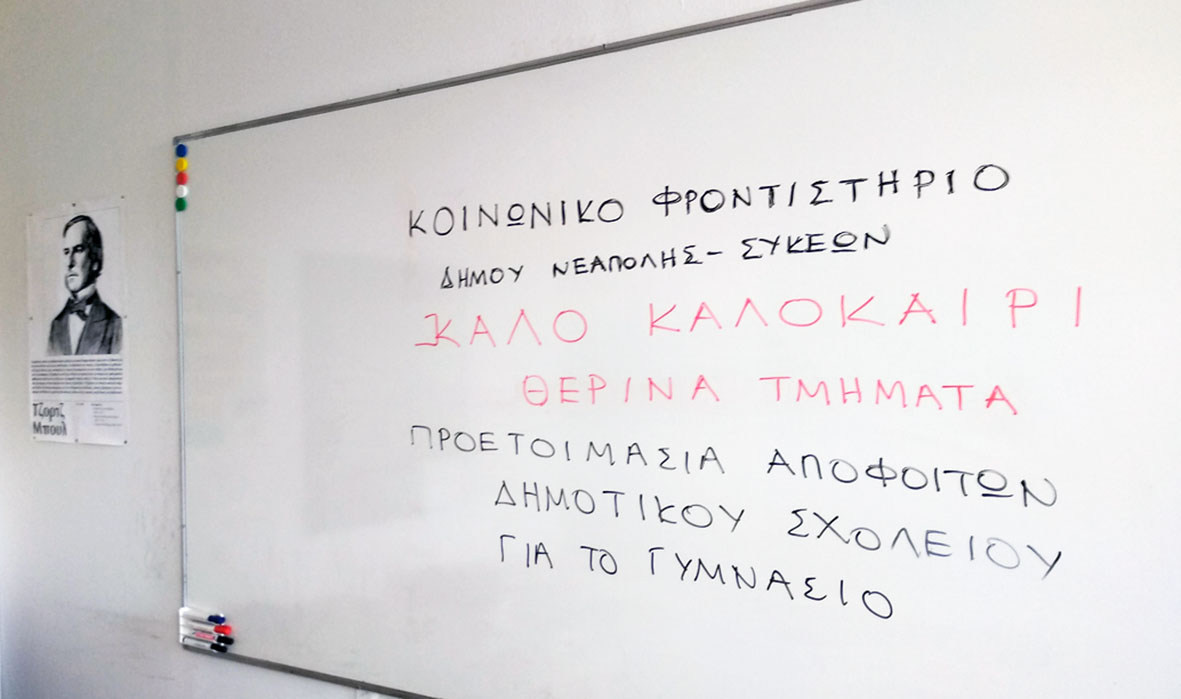 ΚΟΙΝΩΝΙΚΟ ΦΡΟΝΤΙΣΤΗΡΙΟ
ΔΗΜΟΥ ΝΕΑΠΟΛΗΣ - ΣΥΚΕΩΝ
ΚΑΛΟ ΚΑΛΟΚΑΙΡΙ
ΘΕΡΙΝΑ ΤΜΗΜΑΤΑ
ΠΡΟΕΤΟΙΜΑΣΙΑ ΑΠΟΦΟΙΤΩΝ
ΔΗΜΟΤΙΚΟΥ ΣΧΟΛΕΙΟΥ
ΓΙΑ ΤΟ ΓΥΜΝΑΣΙΟ
Τζορτζ
Μπουλ